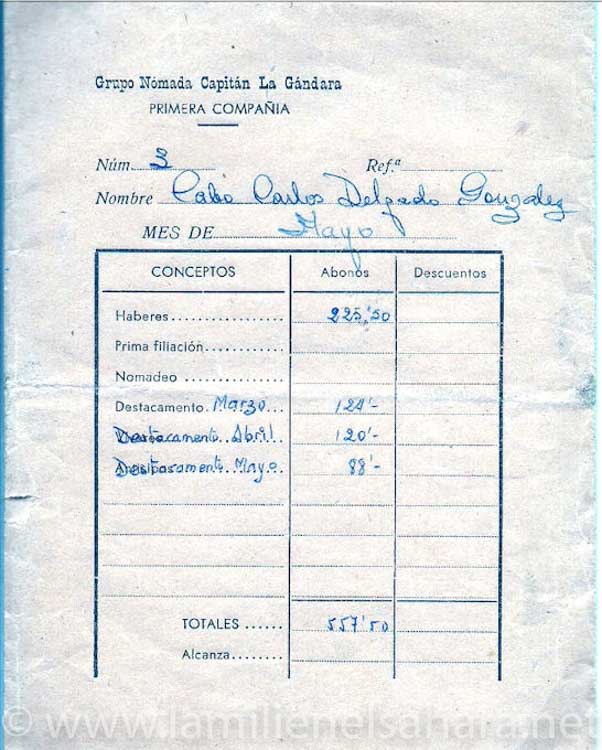 Grupo Nómada Capitán La Gándara
PRIMERA COMPAÑIA
Núm. 3 Ref.ª
Nombre Cabo Carlos Delgado Gonzalez
MES DE Mayo
CONCEPTOS Abonos Descuentos
Haberes 225'50
Prima filiación
Nomadeo
Destacamento Marzo 124'-
Destacamento Abril 120'-
Destacamento Mayo 88'-
TOTALES 557'50
Alcanza
© www.lamilienelsahara.net